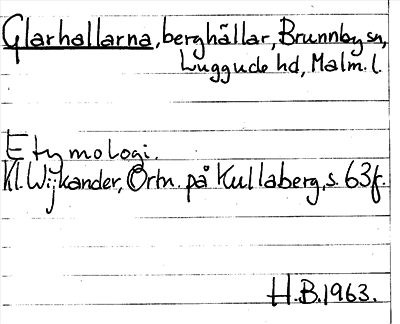 Glarhallarna, berghällar, Brunnby sn,
Luggude hd, Malm. l.
Etymologi.
Kl. Wijkander, Ortn. på Kullaberg, s. 63f.
H.B. 1963.